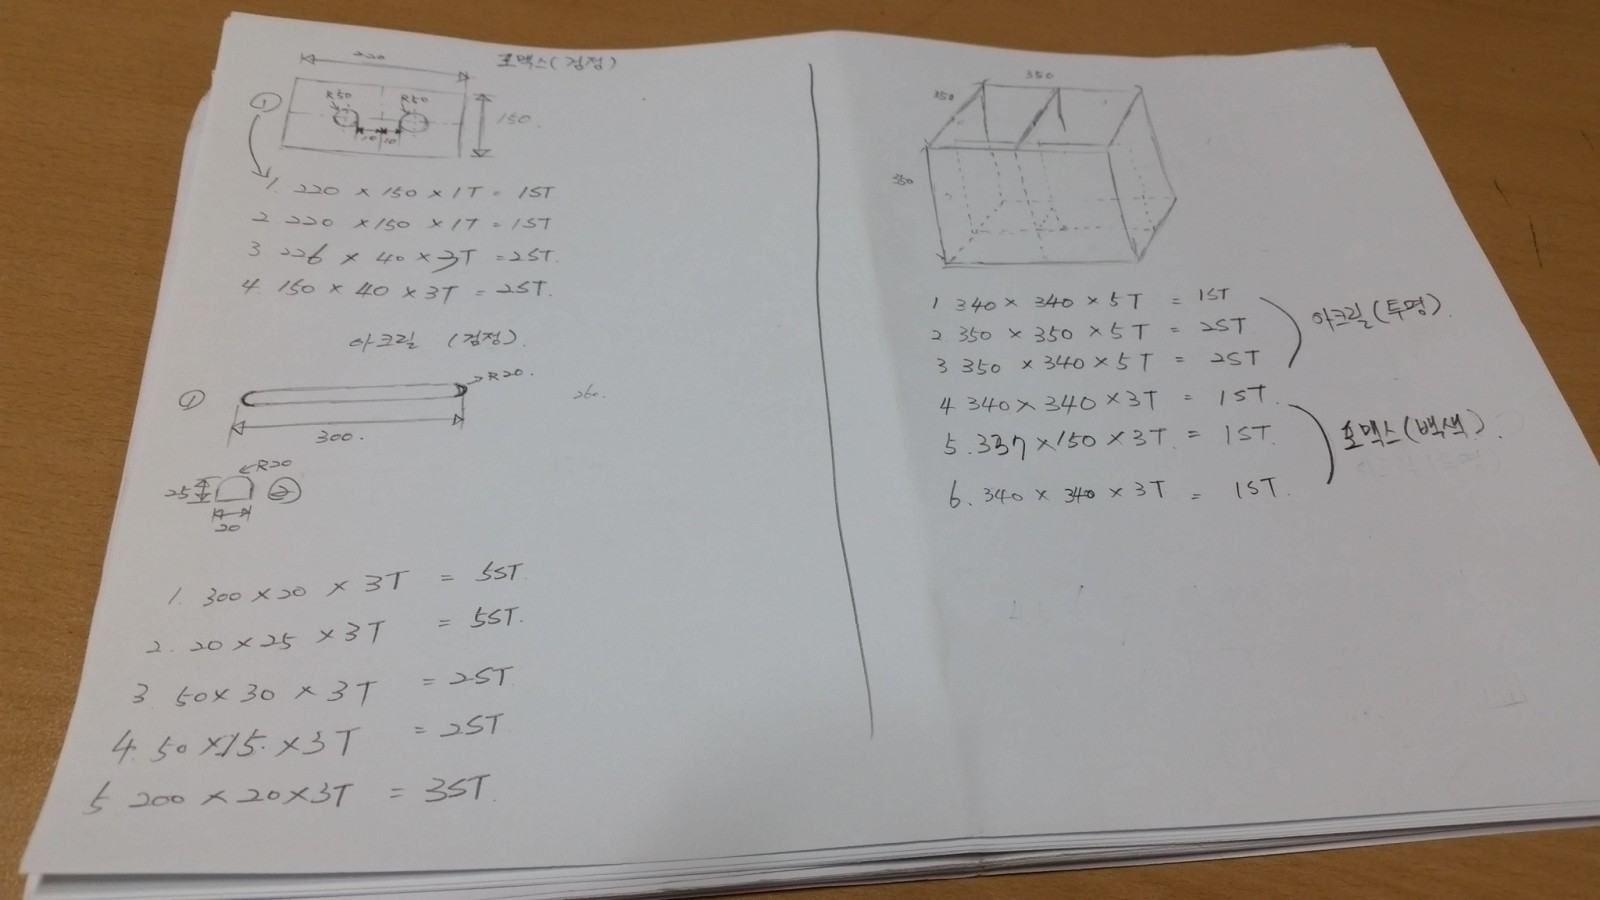 포맥스(검정)
220
①
R50
R50
150.
10
10
1. 220 × 150 × 1T = 1ST
2. 220 × 150 × 1T = 1ST
3 226 × 40 × 3T = 2ST.
4. 150 × 40 × 3T = 2ST.
아크릴 (검정).
①
R20.
260.
300.
R20
25
②
20
1. 300 × 20 × 3T = 5ST
2. 20 × 25 × 3T = 5ST.
3. 50 × 30 × 3T = 2ST
4. 50 × 15. × 3T = 2ST
5 200 × 20 × 3T = 3ST.
350
350
350
1 340 × 340 × 5T = 1ST
2 350 × 350 × 5T = 2ST
3 350 × 340 × 5T = 2ST
아크릴(투명).
4 340 × 340 × 3T = 1ST.
5. 337 × 150 × 3T = 1ST.
6. 340 × 340 × 3T = 1ST.
포맥스(백색).